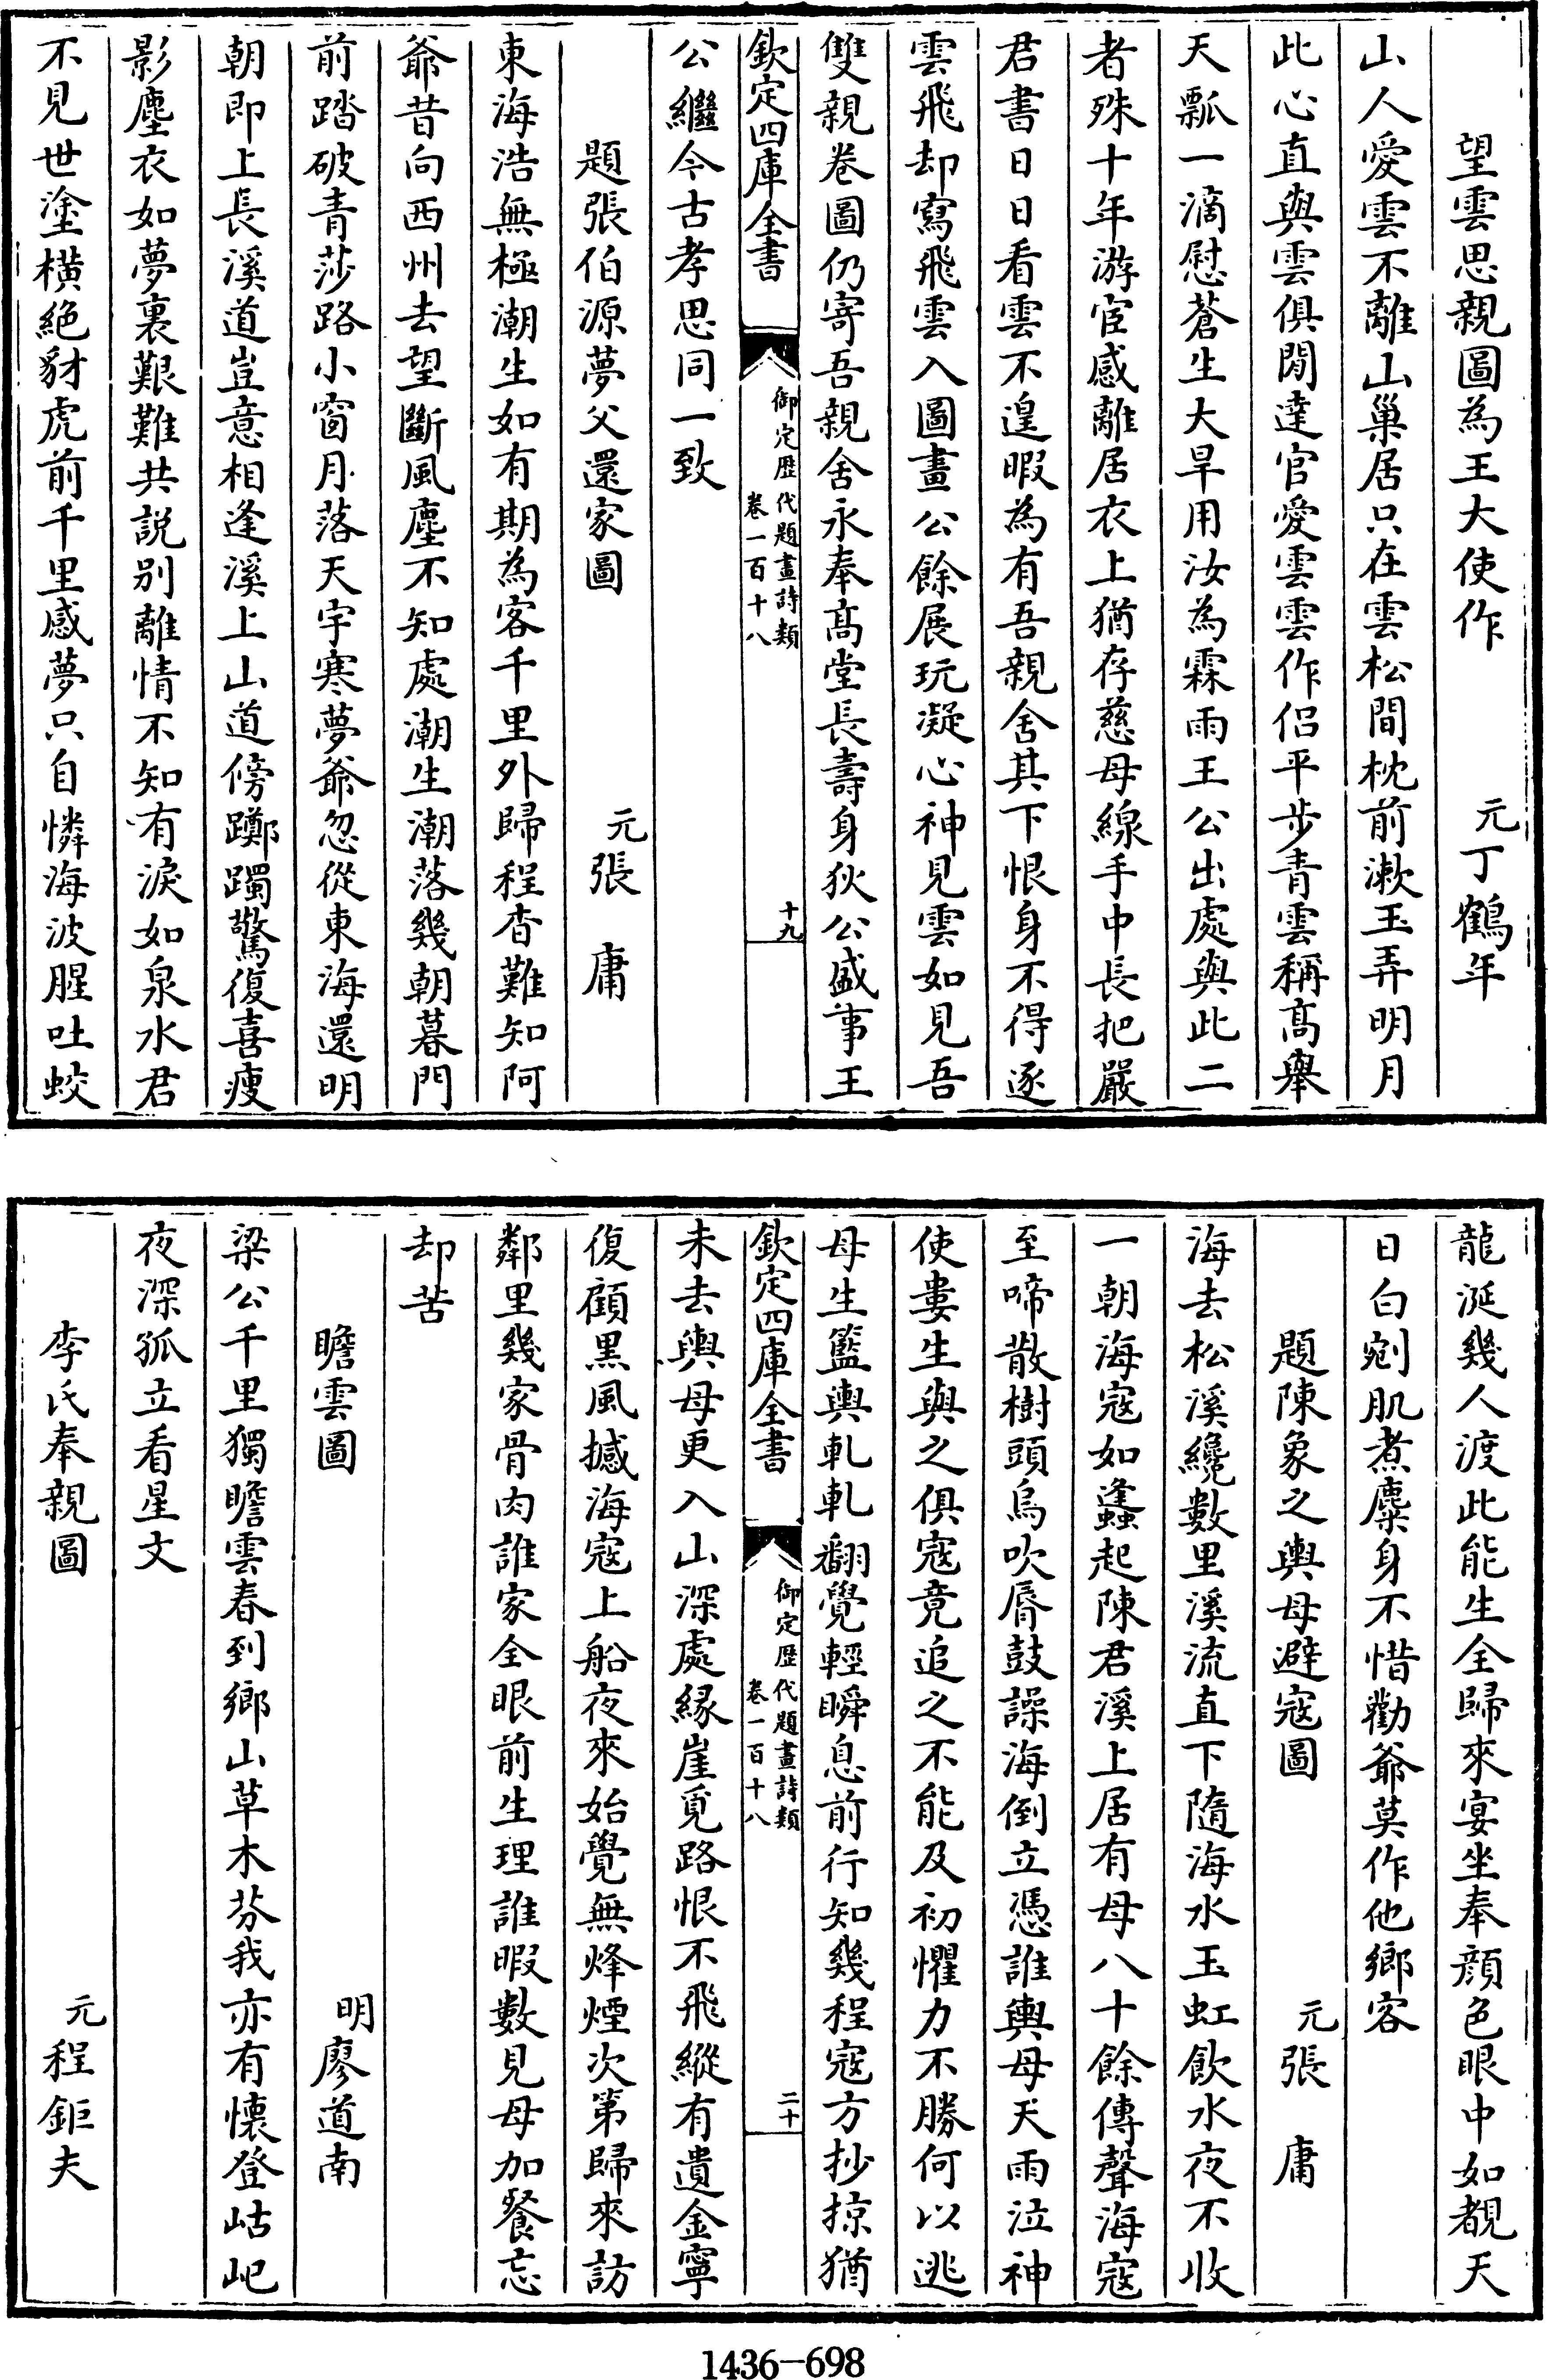 望雲思親圖為王大使作 元丁鶴年
山人愛雲不離山巢居只在雲松間枕前漱玉弄明月
此心直與雲俱閒達官愛雲雲作侣平步青雲稱髙舉
天瓢一滴慰蒼生大旱用汝為霖雨王公出處與此二
者殊十年游宦感離居衣上猶存慈母線手中長把嚴
君書日日看雲不遑暇為有吾親舍其下恨身不得逐
雲飛却寫飛雲入圖畫公餘展玩凝心神見雲如見吾
雙親卷圖仍寄吾親舍永奉髙堂長壽身狄公盛事王
欽定四庫全書 御定歴代題畫詩類 卷一百十八 十九
公繼今古孝思同一致
題張伯源夢父還家圖 元張 庸
東海浩無極潮生如有期為客千里外歸程杳難知阿
爺昔向西州去望斷風塵不知處潮生潮落幾朝暮門
前踏破青莎路小窗月落天宇寒夢爺忽從東海還明
朝即上長溪道豈意相逢溪上山道傍躑躅驚復喜瘦
影塵衣如夢裏艱難共説别離情不知有淚如泉水君
不見世塗橫絶豺虎前千里感夢只自憐海波腥吐蛟
龍涎幾人渡此能生全歸來宴坐奉顔色眼中如覩天
日白剜肌煮麋身不惜勸爺莫作他鄉客
題陳象之輿母避寇圖 元張 庸
海去松溪纔數里溪流直下隨海水玉虹飲水夜不收
一朝海寇如蠭起陳君溪上居有母八十餘傳聲海寇
至啼散樹頭烏吹脣鼓譟海倒立憑誰輿母天雨泣神
使婁生與之俱寇竟追之不能及初懼力不勝何以逃
母生籃輿軋軋翻覺輕瞬息前行知幾程寇方抄掠猶
欽定四庫全書 御定歴代題畫詩類 卷一百十八 二十
未去輿母更入山深處緣崖覓路恨不飛縱有遺金寧
復顧黒風撼海寇上船夜來始覺無烽煙次第歸來訪
鄰里幾家骨肉誰家全眼前生理誰暇數見母加餐忘
却苦
瞻雲圖 明廖道南
梁公千里獨瞻雲春到鄉山草木芬我亦有懷登岵屺
夜深孤立看星文
李氏奉親圖 元程鉅夫
1436-698